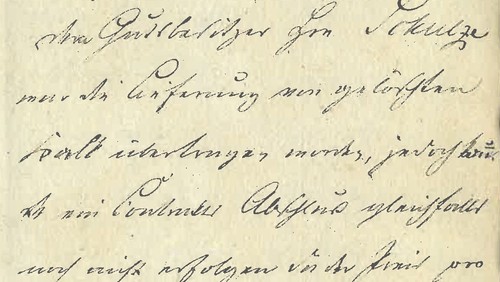 dem Gutsbesitzer Hrn Schulze
war die Lieferung von gelöschten
Kalk übertragen worden, jedoch konn-
te ein Contracts Abschluß gleichfalls
noch nicht erfolgen da der Preis pro